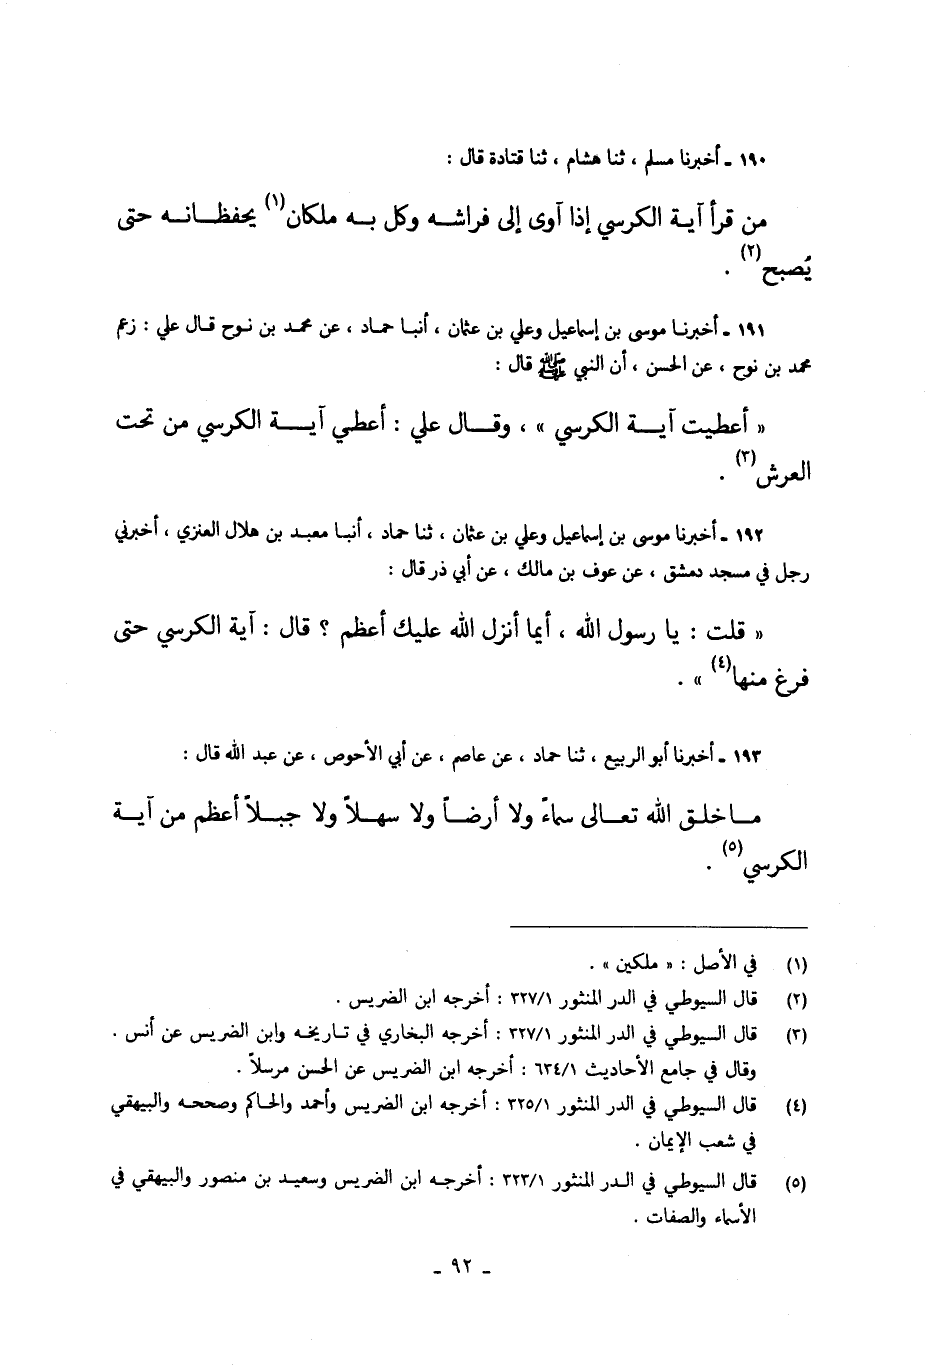 ١٩٠ ـ أخبرنا مسلم ، ثنا هشام ، ثنا قتادة قال :
من قرأ آية الكرسي إذا آوى إلى فراشه وكل به ملكان(١) يحفظانه حتى
يُصبح(٢) .
١٩١ ـ أخبرنا موسى بن إسماعيل وعلي بن عثمان ، أنبا حماد ، عن محمد بن نوح قال علي : زعم
محمد بن نوح ، عن الحسن ، أن النبي ﷺ قال :
« أعطيت آية الكرسي » ، وقال علي : أعطي آية الكرسي من تحت
العرش(٣) .
١٩٢ ـ أخبرنا موسى بن إسماعيل وعلي بن عثمان ، ثنا حماد ، أنبا معبد بن هلال العنزي ، أخبرني
رجل في مسجد دمشق ، عن عوف بن مالك ، عن أبي ذر قال :
« قلت : يا رسول الله ، أيما أنزل الله عليك أعظم ؟ قال : آية الكرسي حتى
فرغ منها(٤) » .
١٩٣ ـ أخبرنا أبو الربيع ، ثنا حماد ، عن عاصم ، عن أبي الأحوص ، عن عبد الله قال :
ما خلق الله تعالى سماءً ولا أرضاً ولا سهلاً ولا جبلاً أعظم من آية
الكرسي(٥) .
(١) في الأصل : « ملكين » .
(٢) قال السيوطي في الدر المنثور ٣٢٧/١ : أخرجه ابن الضريس .
(٣) قال السيوطي في الدر المنثور ٣٢٧/١ : أخرجه البخاري في تاريخه وابن الضريس عن أنس .
وقال في جامع الأحاديث ٦٣٤/١ : أخرجه ابن الضريس عن الحسن مرسلاً .
(٤) قال السيوطي في الدر المنثور ٣٢٥/١ : أخرجه ابن الضريس وأحمد والحاكم وصححه والبيهقي
في شعب الإيمان .
(٥) قال السيوطي في الدر المنثور ٣٢٣/١ : أخرجه ابن الضريس وسعيد بن منصور والبيهقي في
الأسماء والصفات .
ـ ٩٢ ـ